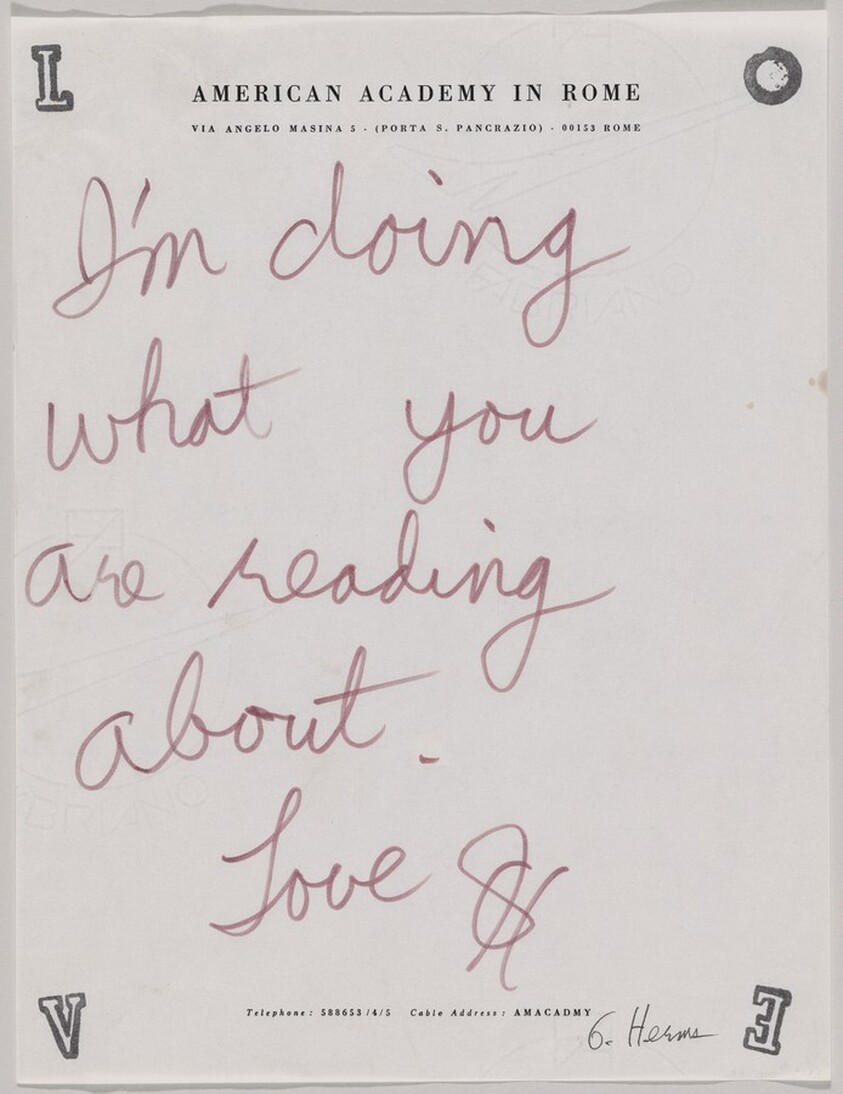 L O
AMERICAN ACADEMY IN ROME
VIA ANGELO MASINA 5 · (PORTA S. PANCRAZIO) · 00153 ROME
I'm doing
what you
are reading
about.
Love
Telephone: 588653/4/5 Cable Address: AMACADMY
G. Herms
V E
FABRIANO
FABRIANO